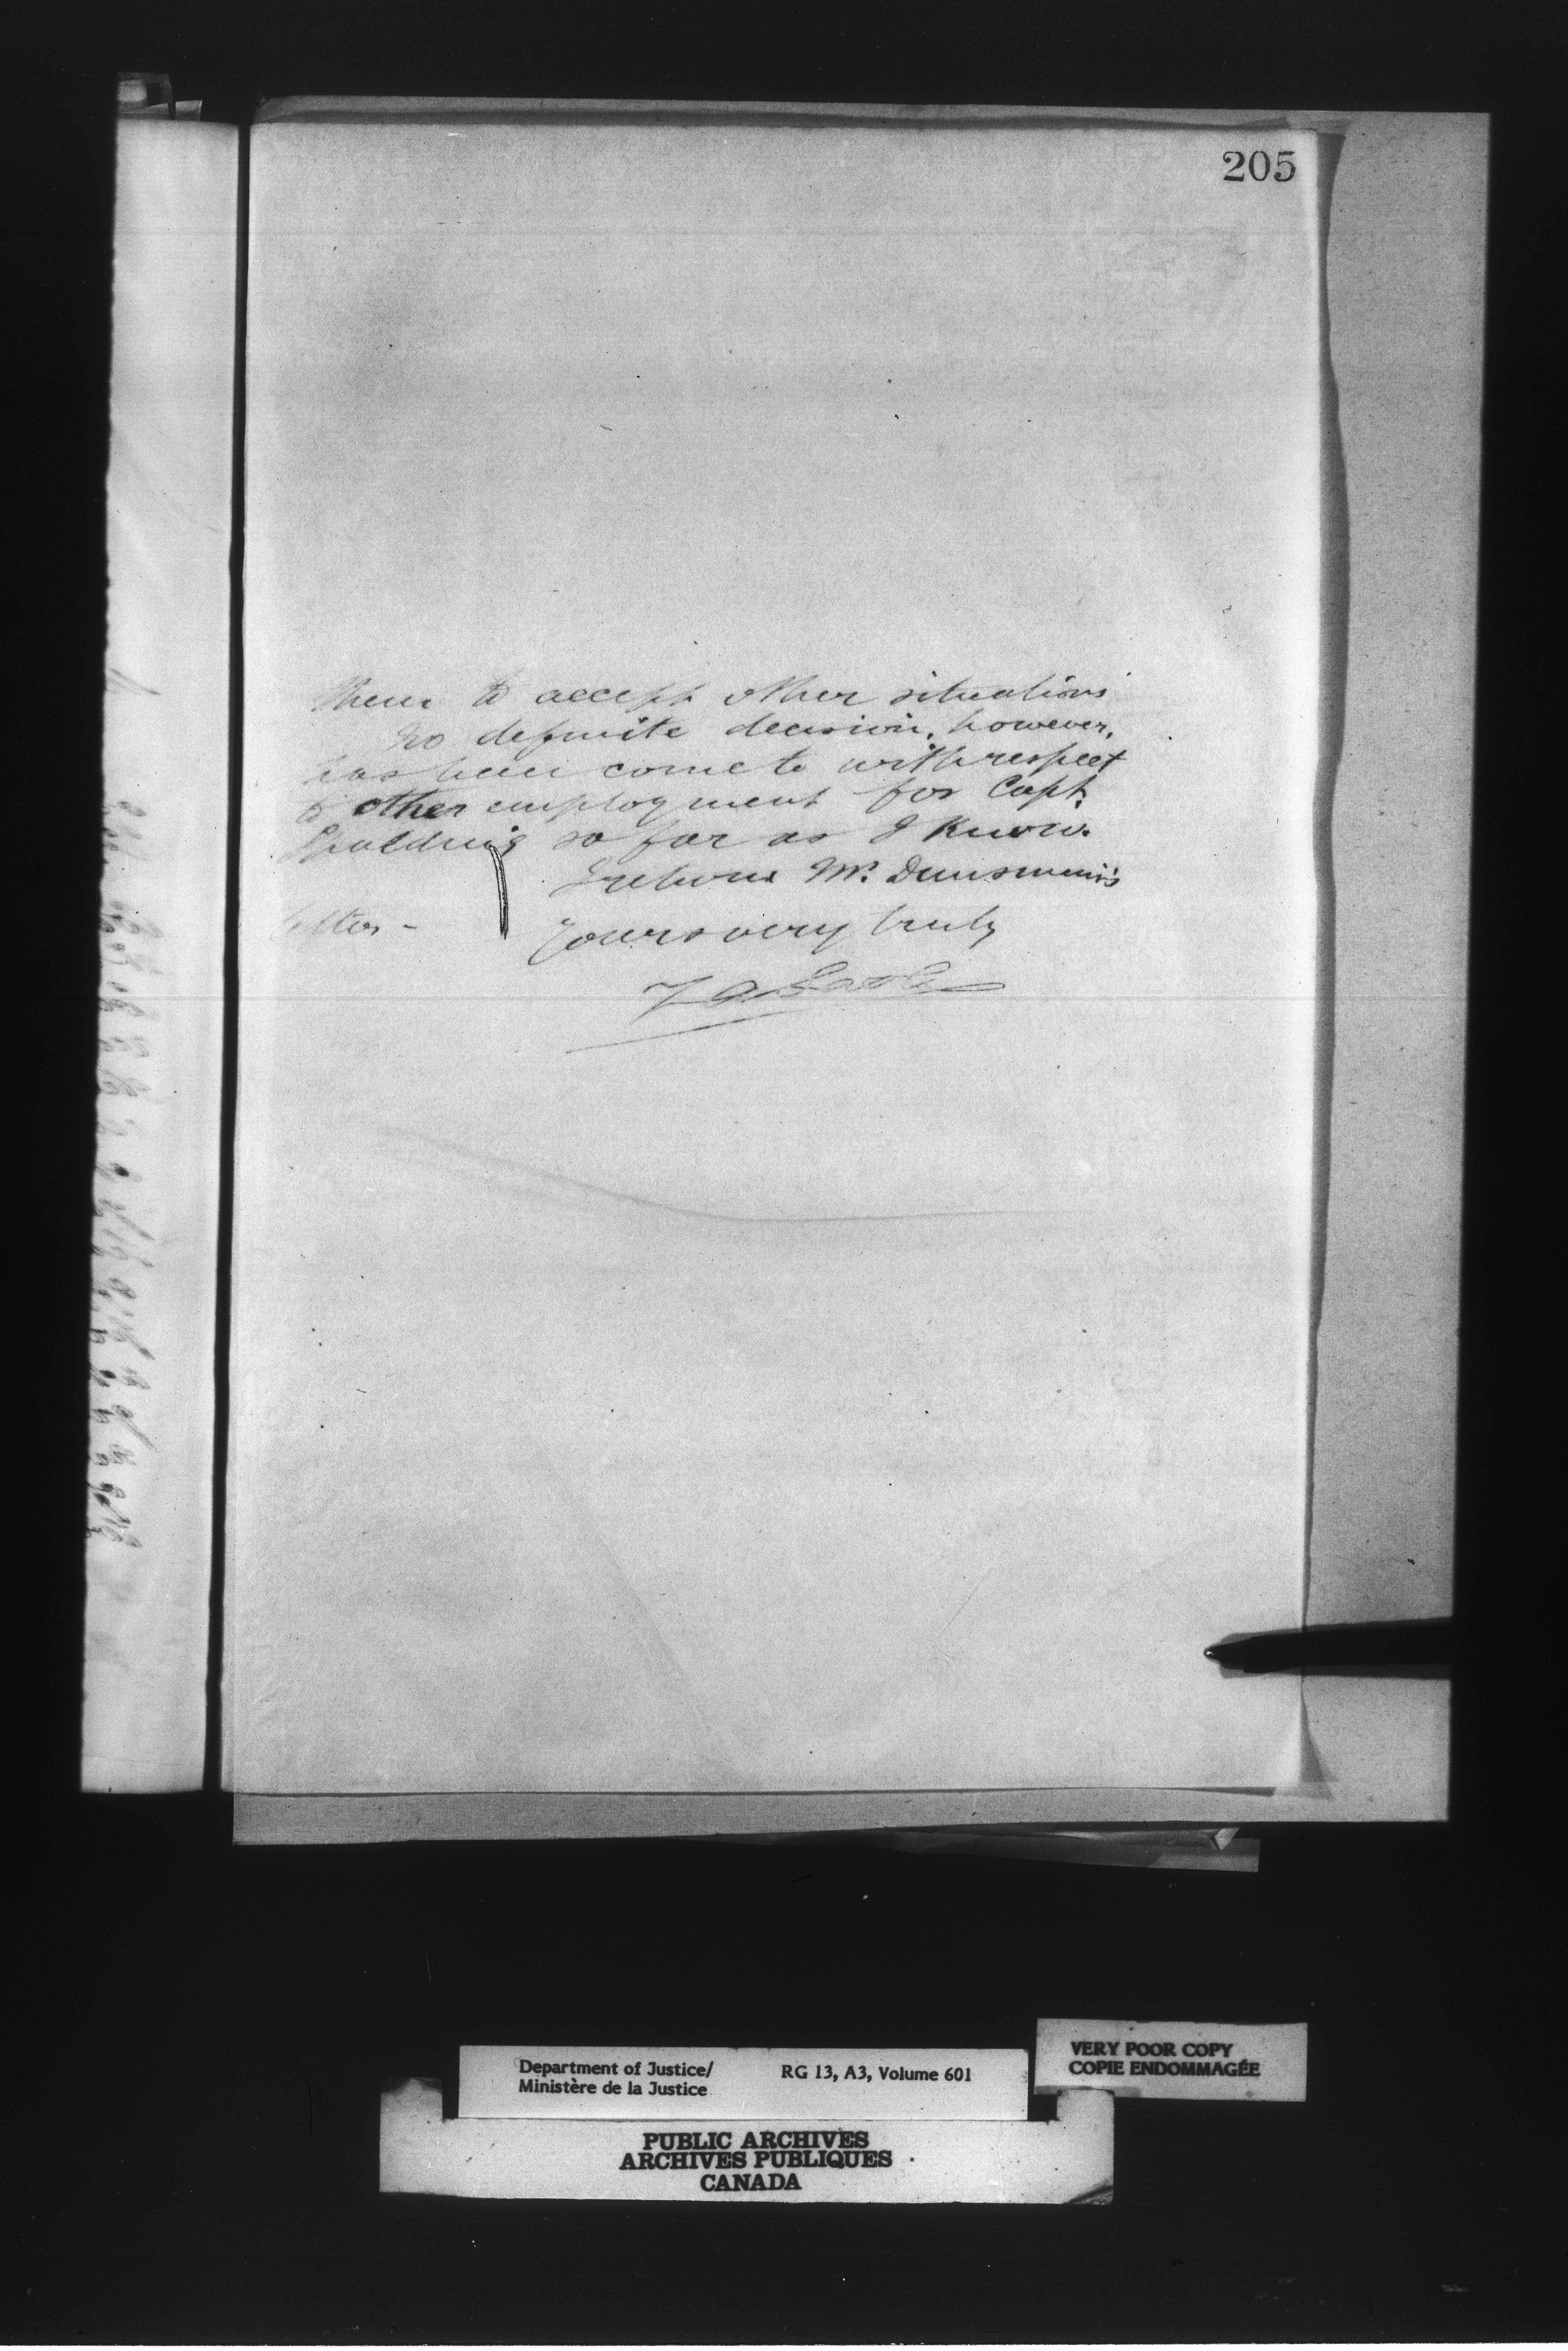 205
them to accept other situations
no definite decision, however,
has been come to with respect
to other employment for Capt.
Spalding so far as I know.
I return Mr. Dunsmuir's
letter -
Yours very truly
Department of Justice/
Ministère de la Justice
RG 13, A3, Volume 601
VERY POOR COPY
COPIE ENDOMMAGÉE
PUBLIC ARCHIVES
ARCHIVES PUBLIQUES
CANADA